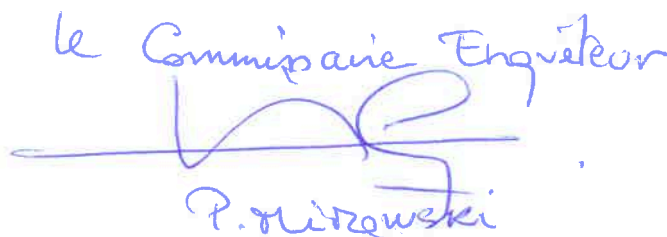 le Commissaire Enquêteur
P. Mirzewski